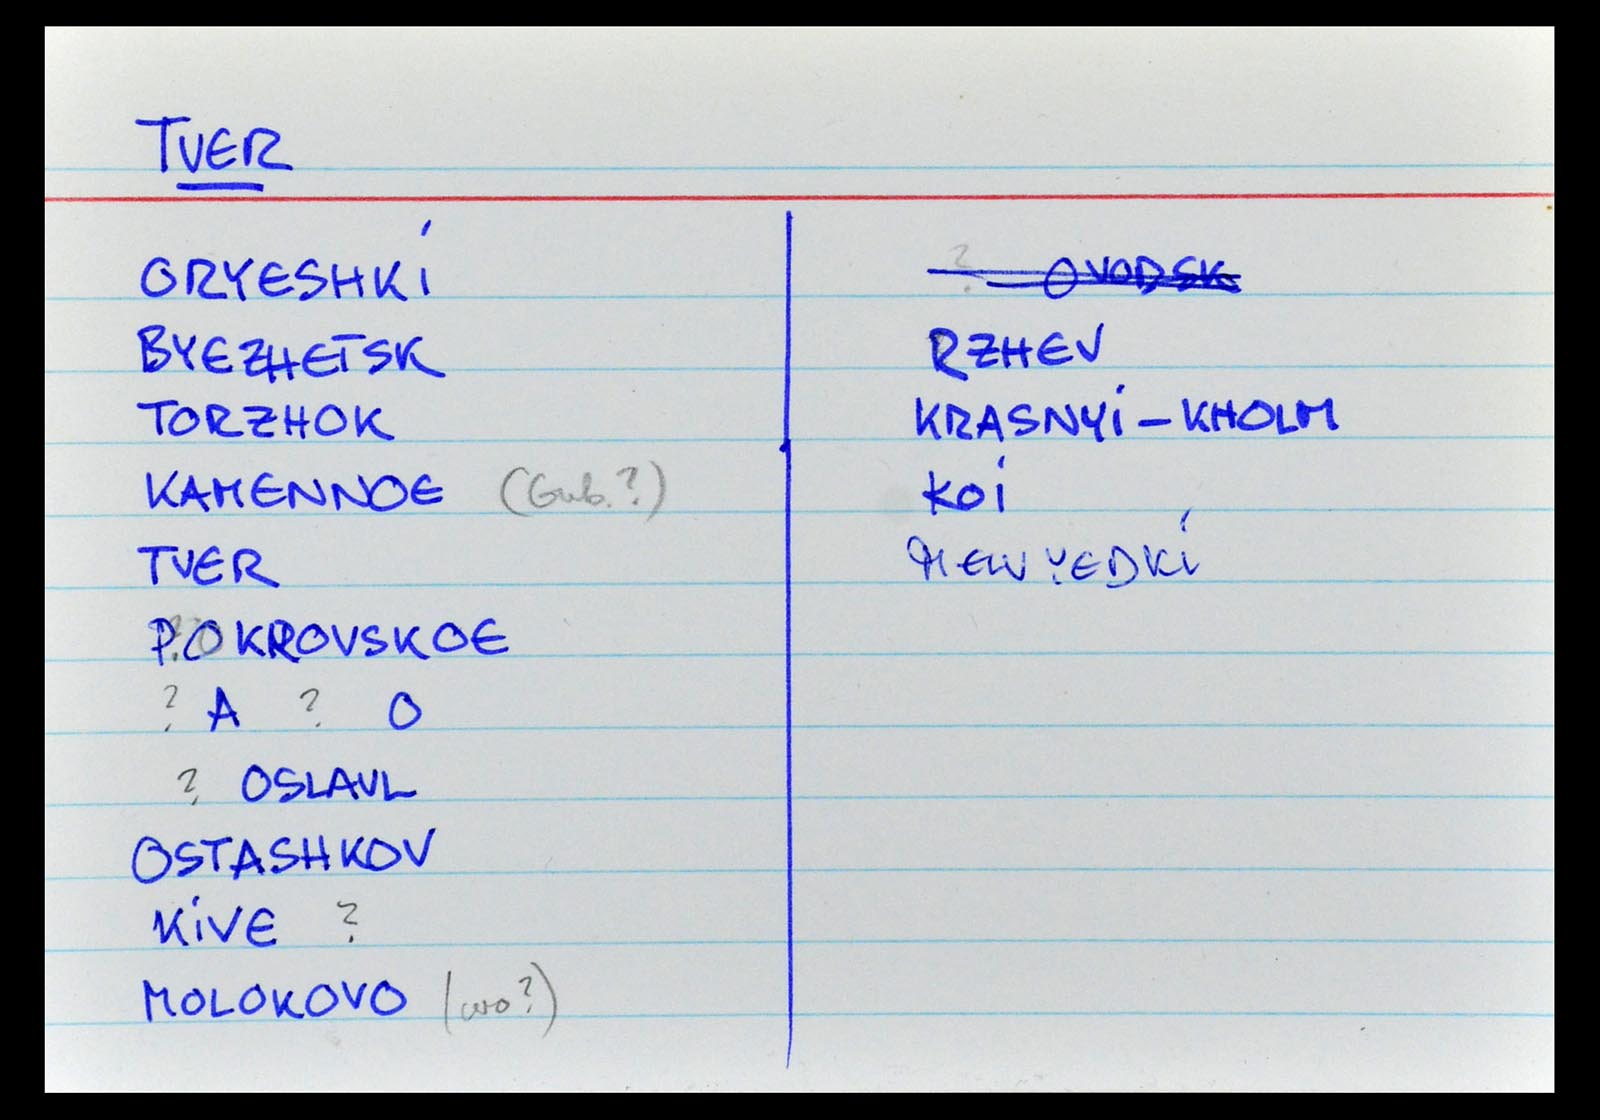 TVER
ORYESHKÍ
BYEZHETSK
TORZHOK
KAMENNOE (Gub.?)
TVER
POKROVSKOE
? A ? O
? OSLAVL
OSTASHKOV
KIVE ?
MOLOKOVO (wo?)
? OVODSK
RZHEV
KRASNYI-KHOLM
KOÍ